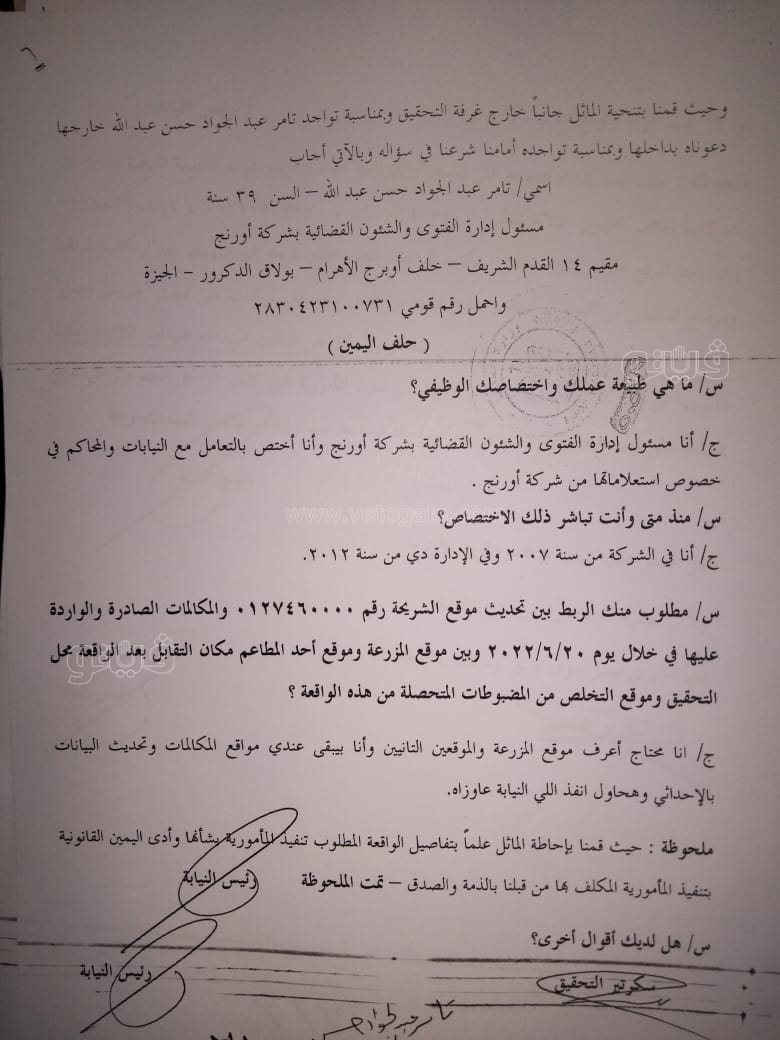 ٦
وحيث قمنا بتنحية الماثل جانباً خارج غرفة التحقيق وبمناسبة تواجد تامر عبد الجواد حسن عبد الله خارجها
دعوناه بداخلها وبمناسبة تواجده أمامنا شرعنا في سؤاله وبالآتي أجاب
اسمي/ تامر عبد الجواد حسن عبد الله – السن ٣٩ سنة
مسئول إدارة الفتوى والشئون القضائية بشركة أورنج
مقيم ١٤ القدم الشريف – خلف أوبرج الأهرام – بولاق الدكرور – الجيزة
واحمل رقم قومي ٢٨٣٠٤٢٣١٠٠٧٣١
( حلف اليمين )
ڤيتو
س/ ما هي طبيعة عملك واختصاصك الوظيفي؟
ج/ أنا مسئول إدارة الفتوى والشئون القضائية بشركة أورنج وأنا أختص بالتعامل مع النيابات والمحاكم في
خصوص استعلاماتها من شركة أورنج .
س/ منذ متى وأنت تباشر ذلك الاختصاص؟
www.vetogate.com
ج/ أنا في الشركة من سنة ٢٠٠٧ وفي الإدارة دي من سنة ٢٠١٢.
س/ مطلوب منك الربط بين تحديث موقع الشريحة رقم ٠١٢٧٤٦٠٠٠٠ والمكالمات الصادرة والواردة
عليها في خلال يوم ٢٠٢٢/٦/٢٠ وبين موقع المزرعة وموقع أحد المطاعم مكان التقابل بعد الواقعة محل
ڤيتو
التحقيق وموقع التخلص من المضبوطات المتحصلة من هذه الواقعة ؟
ج/ انا محتاج أعرف موقع المزرعة والموقعين التانيين وأنا بيبقى عندي مواقع المكالمات وتحديث البيانات
بالإحداثي وهحاول انفذ اللي النيابة عاوزاه.
ملحوظة : حيث قمنا بإحاطة الماثل علماً بتفاصيل الواقعة المطلوب تنفيذ المأمورية بشأنها وأدى اليمين القانونية
بتنفيذ المأمورية المكلف بها من قبلنا بالذمة والصدق – تمت الملحوظة
رئيس النيابة
س/ هل لديك أقوال أخرى؟
سكرتير التحقيق
رئيس النيابة
تامر عبد الجواد